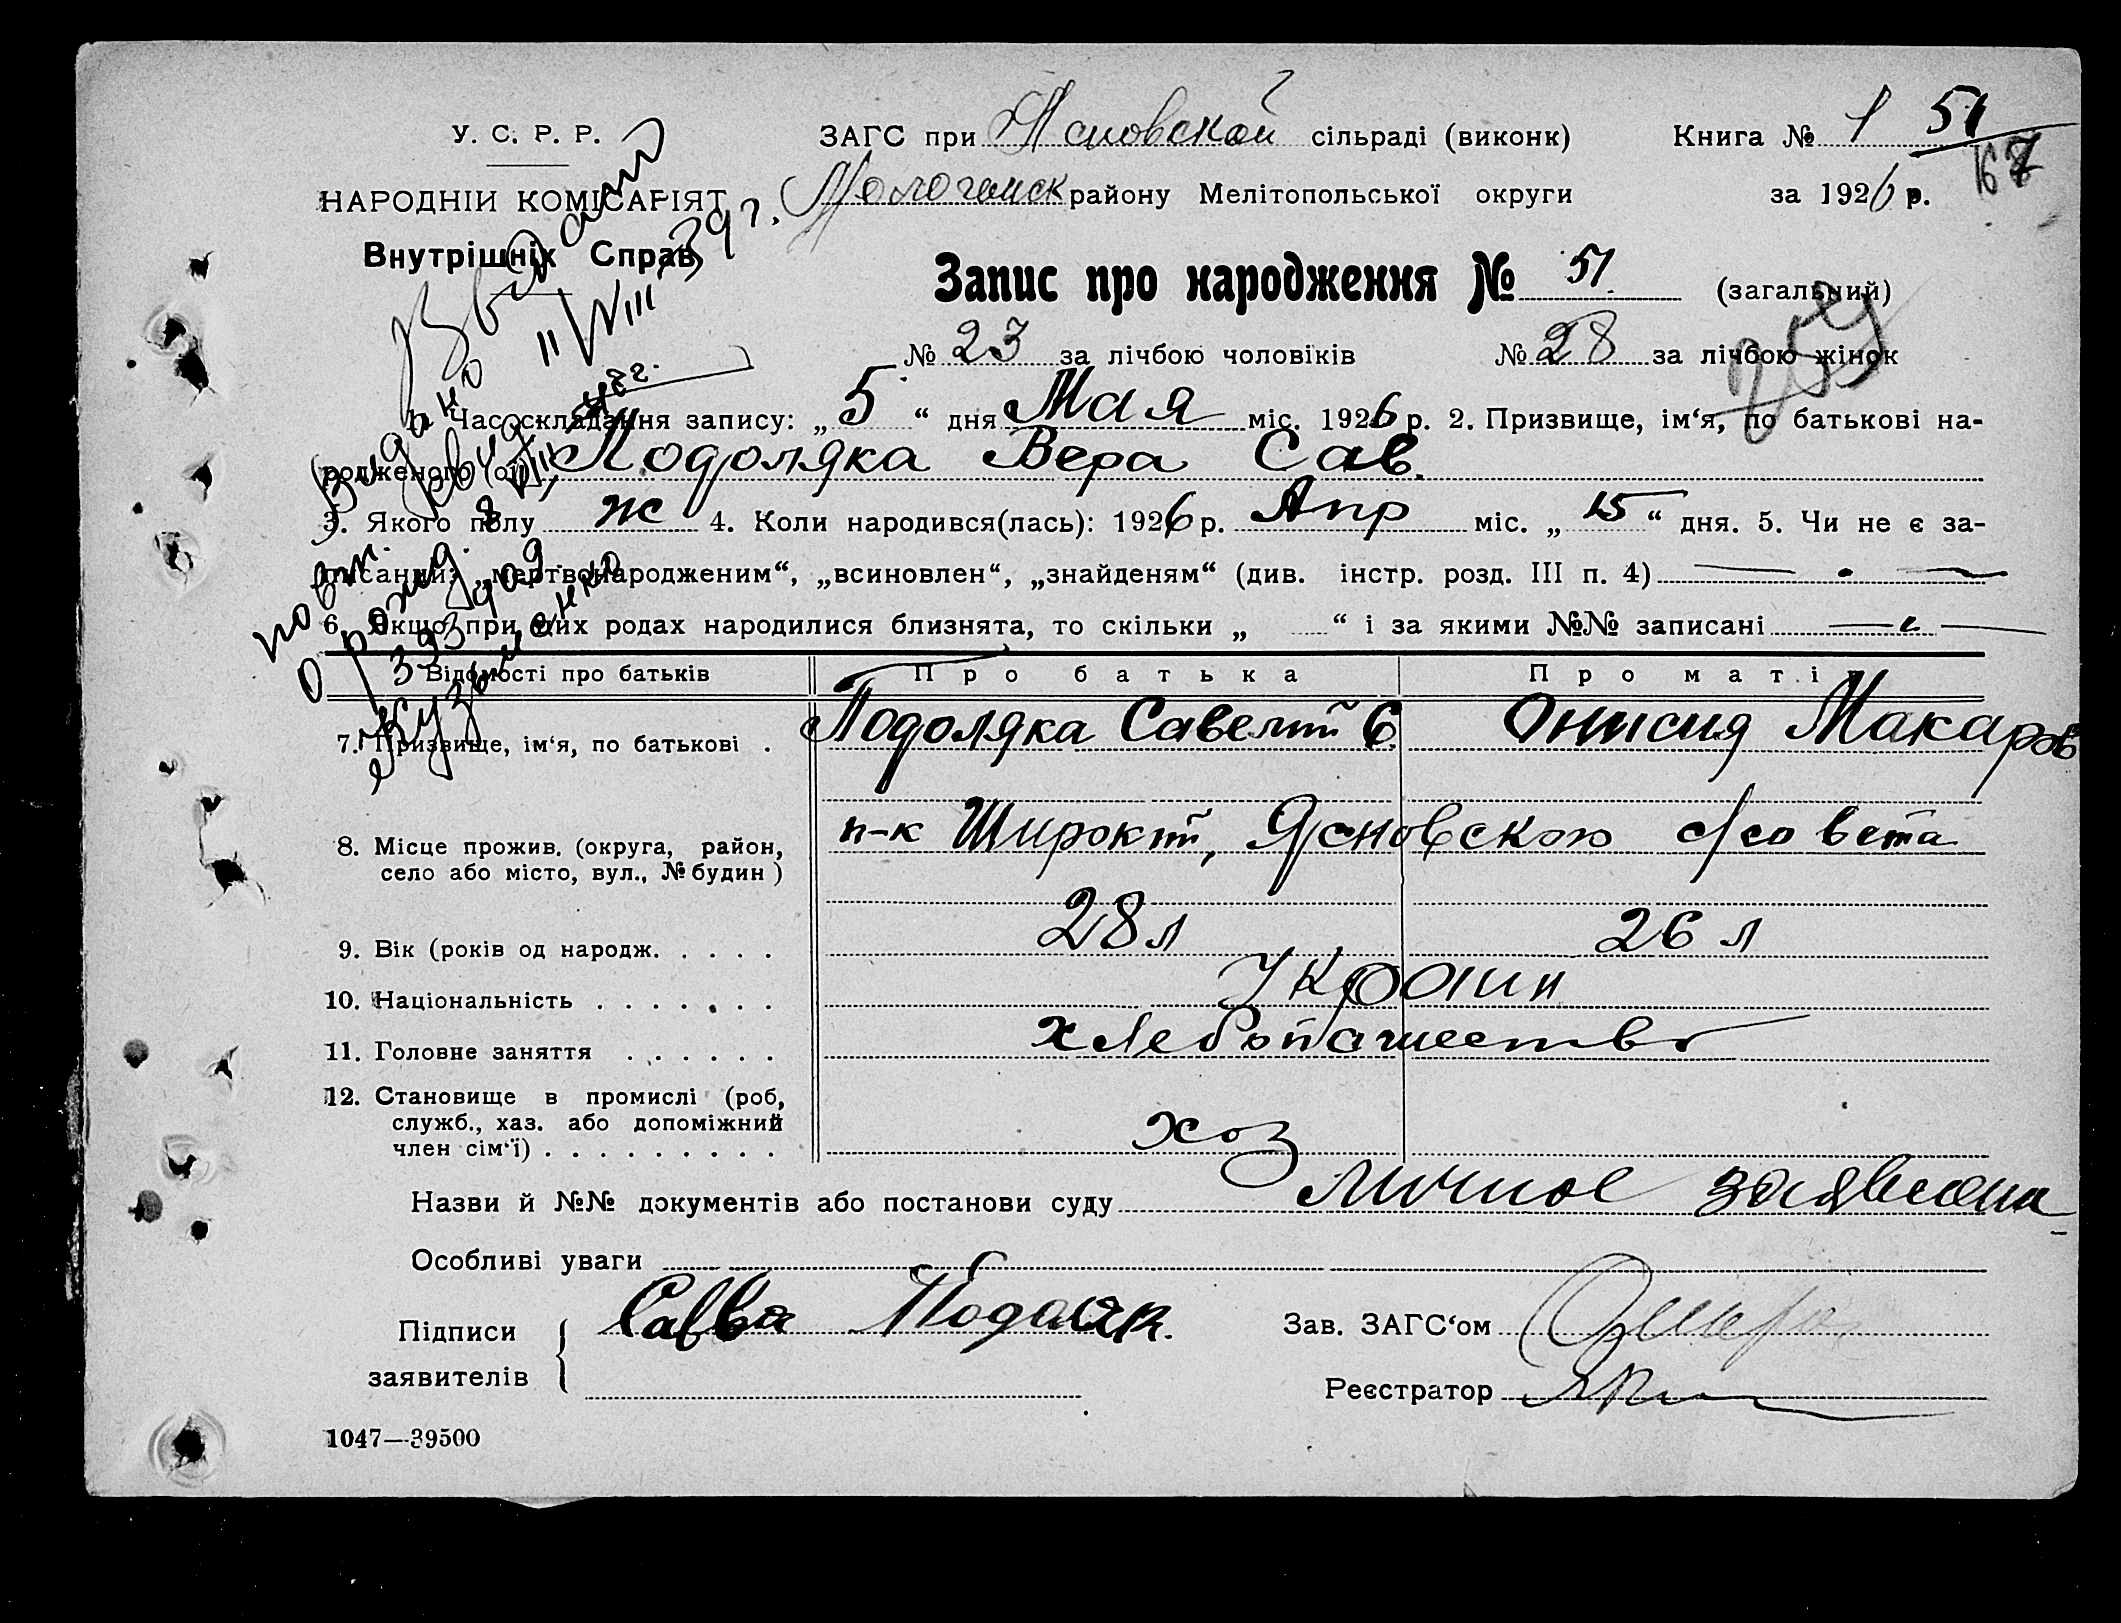 У. С. Р. Р.
НАРОДНІЙ КОМІСАРІЯТ
Внутрішніх Справ
ЗАГС при Ясновской сільраді (виконк)
Книга № 1 51
67
района Мелітопольської округи за 1926 р.
Запис про народження № 51 (загальний)
№ 23 за лічбою чоловіків № 28 за лічбою жінок
1. Час складання запису: „ 5 “ дня Мая міс. 1926 р. 2. Призвище, ім‘я, по батькові на-
родженого (ої) Подоляка Вера Сав.
3. Якого полу ж 4. Коли народився(лась): 1926 р. Апр міс. „ 15 “ дня. 5. Чи не є за-
писаний: „мертвонародженим“, „всиновлен“, „знайденям“ (див. інстр. розд. III п. 4)
6. Якщо при цих родах народилися близнята, то скільки „ “ і за якими №№ записані
Відомості про батьків
Про батька
Про матір
7. Призвище, ім‘я, по батькові .
Подоляка Савелий С.
Онисия Макаров
8. Місце прожив. (округа, район,
село або місто, вул., № будин )
п-к Широкий, Ясновского с/совета
9. Вік (років од народж. . . . .
28 л
26 л
10. Національність . . . . . . .
Украин
11. Головне заняття . . . . . .
хлебопашество
12. Становище в промислі (роб,
служб., хаз. або допоміжний
член сім‘ї) . . . . . . . . .
хоз
Назви й №№ документів або постанови суду личное
Особливі уваги
Підписи
заявителів
Савва Подоляк.
Зав. ЗАГС‘ом
Реєстратор
1047—39500
Видано
повт.
о рожд.